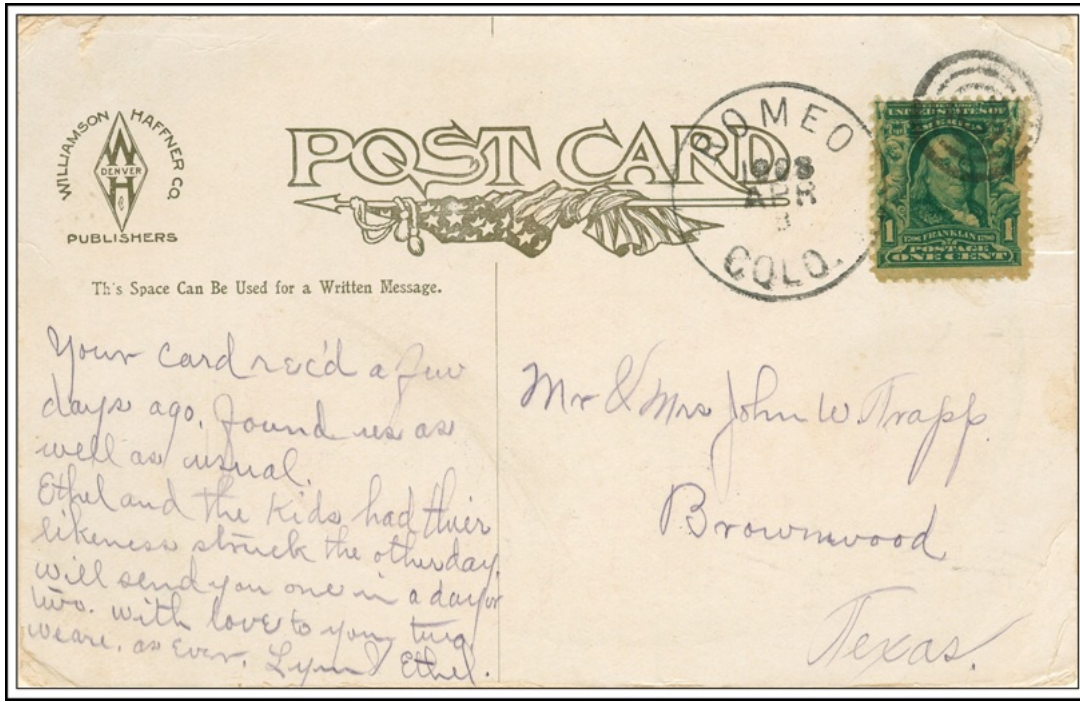 WILLIAMSON HAFFNER CO.
W
DENVER
H
PUBLISHERS
POST CARD
ROMEO
1908
APR
3
COLO.
UNITED STATES OF
AMERICA
1 FRANKLIN 1
POSTAGE
ONE CENT
This Space Can Be Used for a Written Message.
Your card rec'd a few
days ago. found us as
well as usual.
Ethel and the kids had thier
likeness struck the other day.
will send you one in a day or
two. with love to you two
we are, as Ever. Lynn & Ethel.
Mr & Mrs John W. Trapp.
Brownwood
Texas.